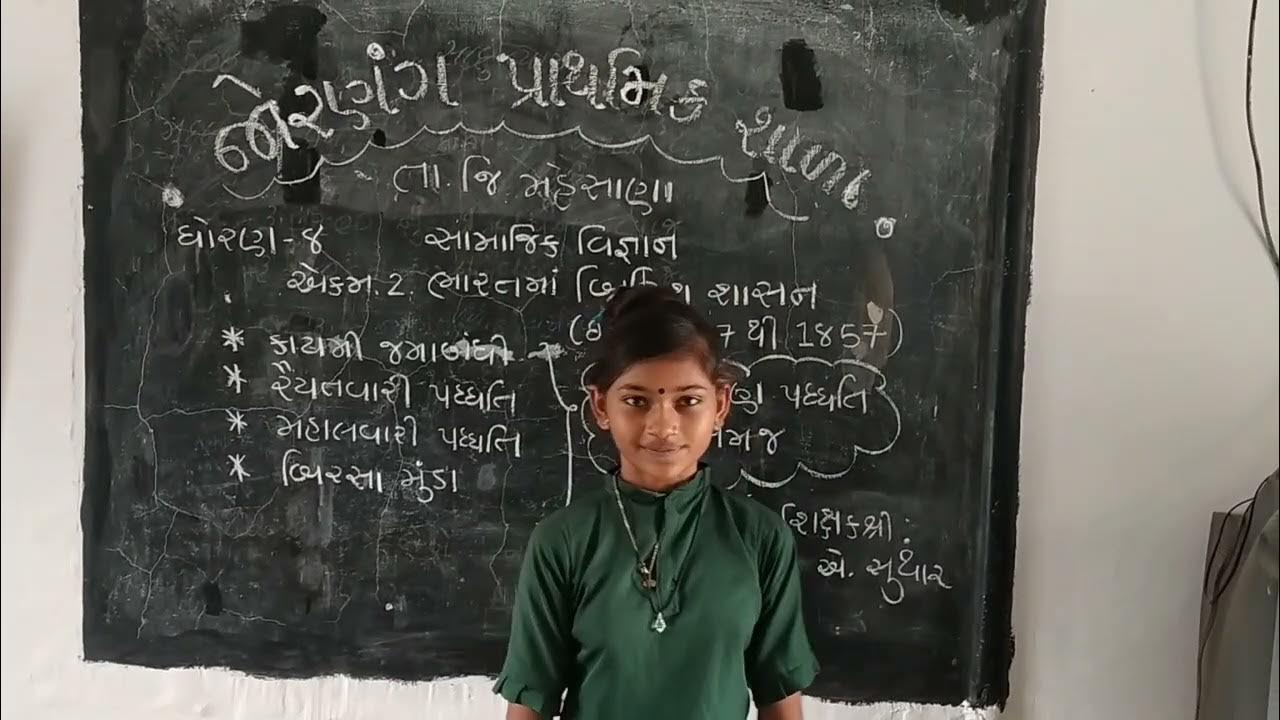 જોરણંગ પ્રાથમિક શાળા
તા. જિ મહેસાણા
ધોરણ-૪ સામાજિક વિજ્ઞાન
એકમ. 2. ભારતમાં શાસન
7 થી 1857)
* કાયમી જમાબંધી
* રૈયતવારી પધ્ધતિ
* મહાલવારી પધ્ધતિ
* બિરસા મુંડા
પધ્ધતિ
શિક્ષકશ્રી :
એ. સુથાર